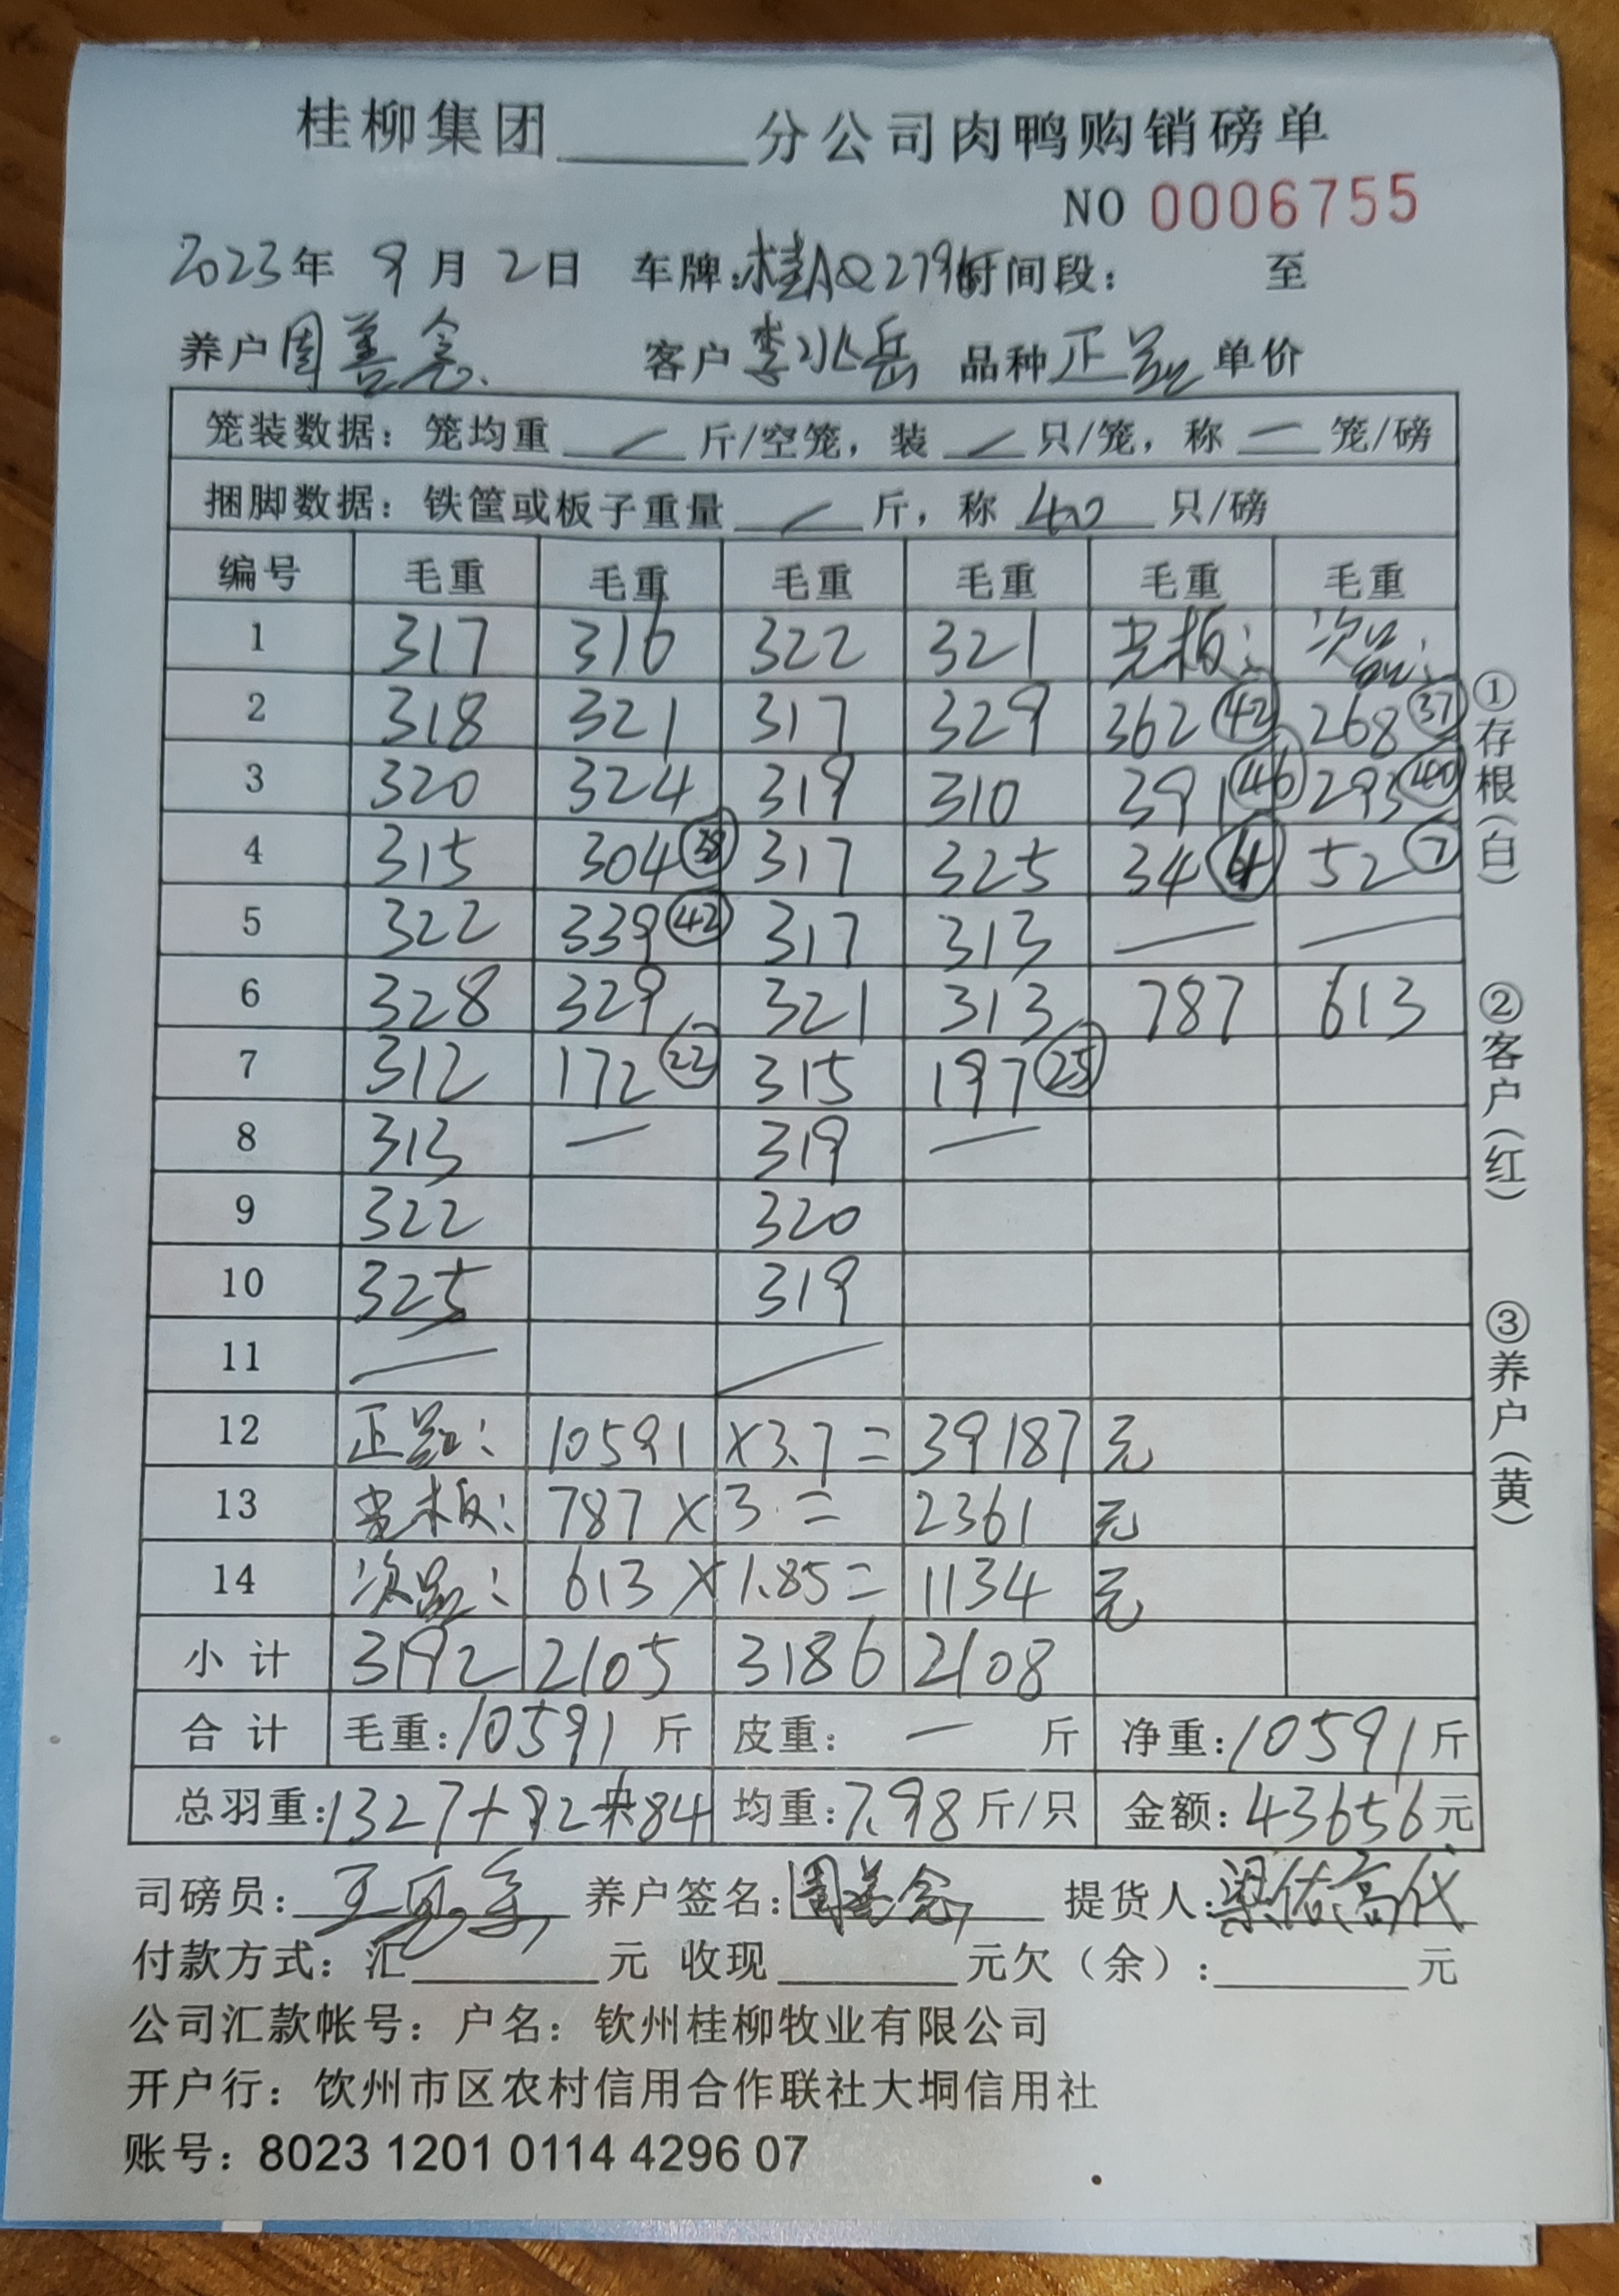 桂柳集团______分公司肉鸭购销磅单
NO 0006755
2023年 9月 2日 车牌:桂AQ2796 时间段: 至
养户 周善念 客户 李北岳 品种 正品 单价
笼装数据: 笼均重 — 斤/空笼, 装 — 只/笼, 称 — 笼/磅
捆脚数据: 铁筐或板子重量 — 斤, 称 40 只/磅
编号 毛重 毛重 毛重 毛重 毛重 毛重
1 317 316 322 321 老板: 次品:
2 318 321 317 329 362 ㊷ 268 ㊲
3 320 324 319 310 391 ㊻ 293 ㊵
4 315 304 ㊳ 317 325 34 ④ 52 ⑦
5 322 339 ㊷ 317 313 — —
6 328 329 321 313 787 613
7 312 172 ㉒ 315 197 ㉕
8 313 — 319 —
9 322 320
10 325 319
11 — —
12 正品: 10591 ×3.7= 39187 元
13 老板: 787 × 3 = 2361 元
14 次品: 613 × 1.85= 1134 元
小计 3192 2105 3186 2108
合计 毛重:10591 斤 皮重: — 斤 净重:10591斤
总羽重:1327+92+84 均重:7.98斤/只 金额:43656元
司磅员: 养户签名:周善念 提货人:
付款方式: 汇______元 收现______元欠(余):______元
公司汇款帐号: 户名: 钦州桂柳牧业有限公司
开户行: 饮州市区农村信用合作联社大垌信用社
账号: 8023 1201 0114 4296 07
①存根(白)
②客户(红)
③养户(黄)